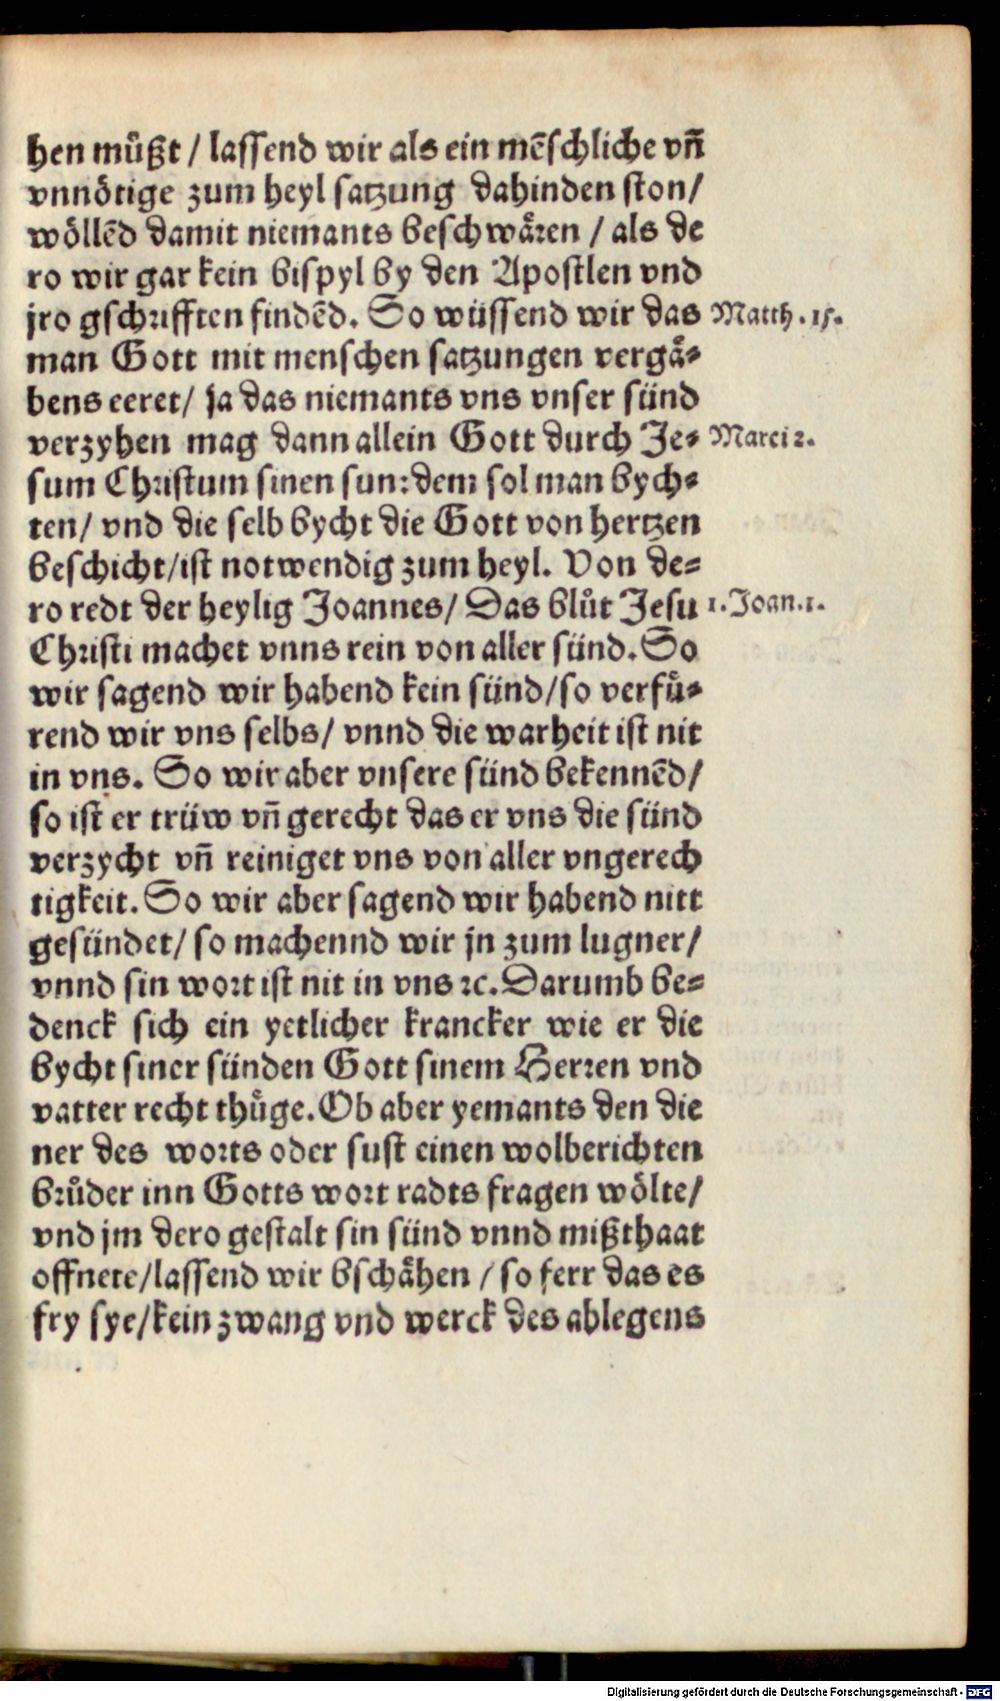 hen müßt / lassend wir als ein mēschliche vn̄
vnnötige zum heyl satzung dahinden ston/
wöllēd damit niemants beschwären / als de
ro wir gar kein bispyl by den Apostlen vnd
jro gschrifften findēd. So wüssend wir das
Matth. 15.
man Gott mit menschen satzungen vergä-
bens eeret/ ja das niemants vns vnser sünd
verzyhen mag dann allein Gott durch Je-
Marci 2.
sum Christum sinen sun: dem sol man bych-
ten/ vnd die selb bycht die Gott von hertzen
beschicht/ist notwendig zum heyl. Von de-
ro redt der heylig Joannes/ Das blůt Jesu
1. Joan. 1.
Christi machet vnns rein von aller sünd. So
wir sagend wir habend kein sünd/so verfü-
rend wir vns selbs/ vnnd die warheit ist nit
in vns. So wir aber vnsere sünd bekennēd/
so ist er trüw vn̄ gerecht das er vns die sünd
verzycht vn̄ reiniget vns von aller vngerech
tigkeit. So wir aber sagend wir habend nitt
gesündet/ so machennd wir jn zum lugner/
vnnd sin wort ist nit in vns ꝛc. Darumb be-
denck sich ein yetlicher krancker wie er die
bycht siner sünden Gott sinem Herren vnd
vatter recht thüge. Ob aber yemants den die
ner des worts oder sust einen wolberichten
brůder inn Gotts wort radts fragen wölte/
vnd jm dero gestalt sin sünd vnnd mißthaat
offnete/lassend wir bschähen / so ferr das es
fry sye/kein zwang vnd werck des ablegens
Digitalisierung gefördert durch die Deutsche Forschungsgemeinschaft - DFG